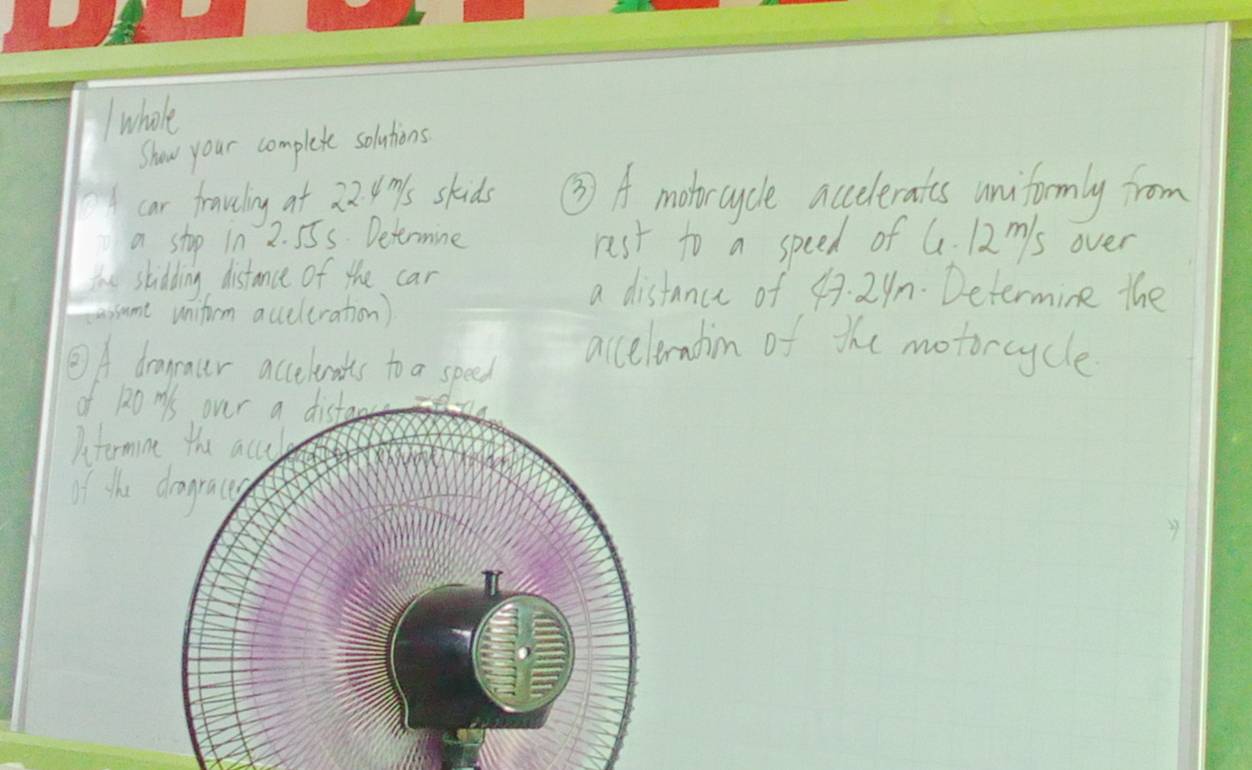 1 whole
Show your complete solutions.
① A car traveling at 22.4 m/s skids
to a stop in 2.55 s. Determine
the skidding distance of the car
(assume uniform acceleration)
② A dragracer accelerates to a speed
of 120 m/s over a distance
Determine the
of the dragracer
③ A motorcycle accelerates uniformly from
rest to a speed of 6.12 m/s over
a distance of 47.24m. Determine the
acceleration of the motorcycle.